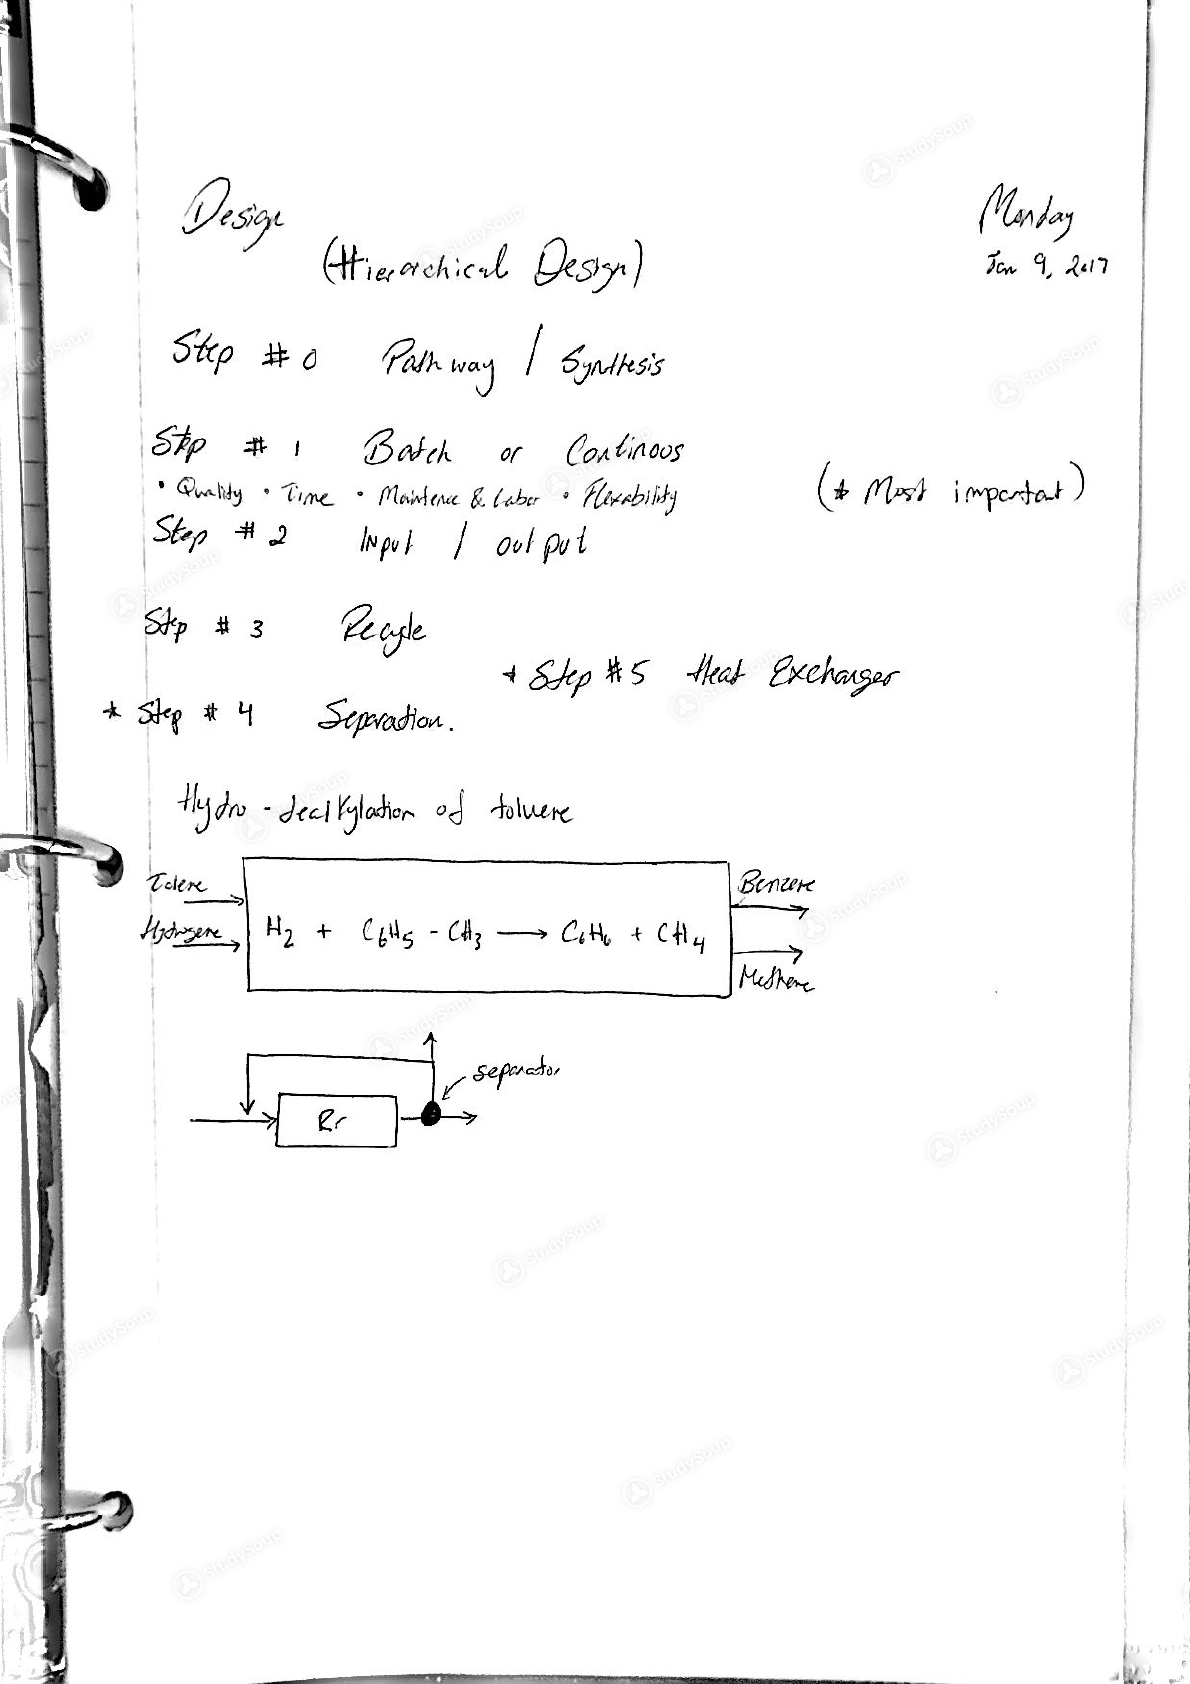 Design
Monday
(Hierarchical Design)
Jan 9, 2017
Step #0 Pathway / Synthesis
Step # 1 Batch or Continous
• Quality • Time • Maintence & Labor • Flexability
(* Most important)
Step # 2 Input / output
Step # 3 Recycle
* Step #5 Heat Exchanger
* Step # 4 Separation.
Hydro-dealkylation of toluene
Tolene
Benzene
Hydrogene
H2 + C6H5 - CH3 → C6H6 + CH4
Methene
separator
Rr
StudySoup